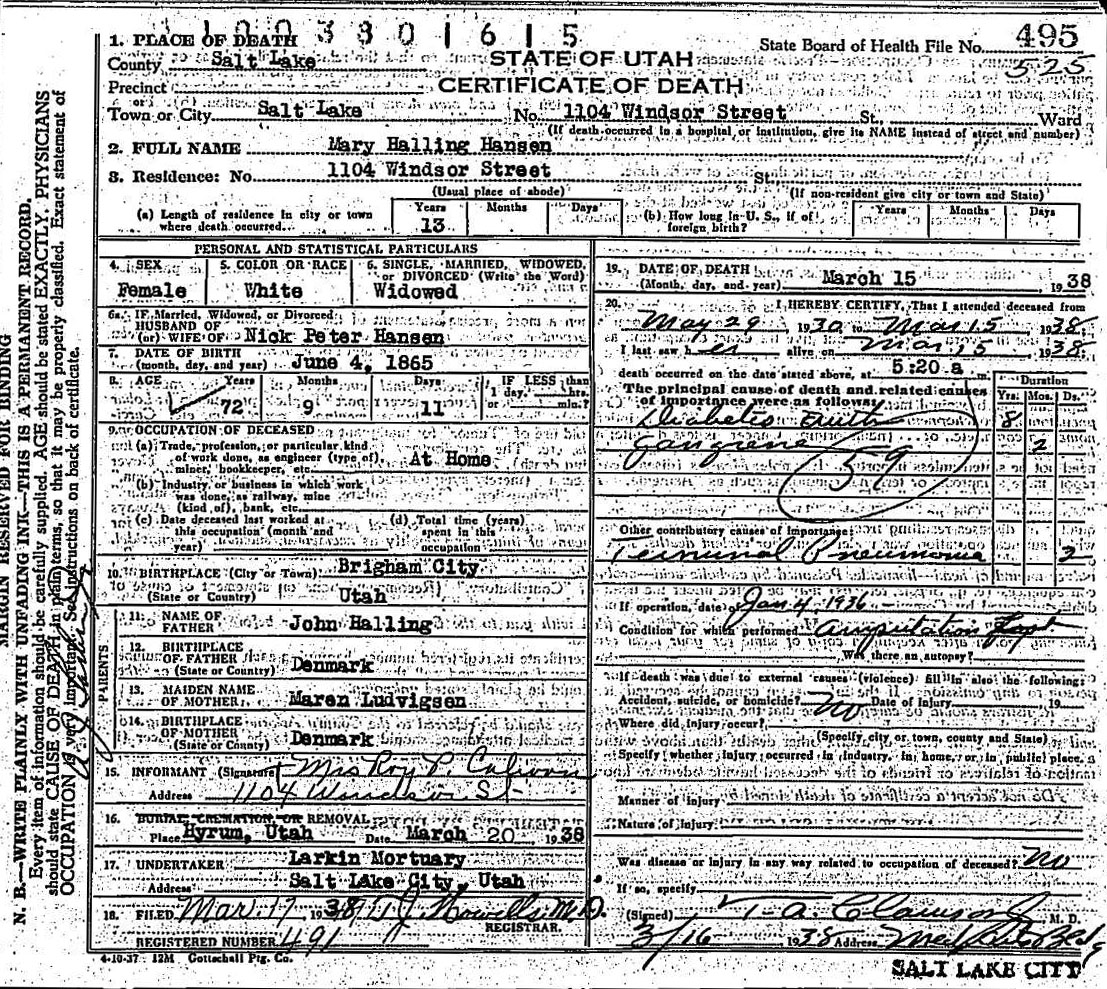 1003301615
1. PLACE OF DEATH
State Board of Health File No. 495
County Salt Lake
STATE OF UTAH
525
Precinct
CERTIFICATE OF DEATH
or
Town or City Salt Lake No. 1104 Windsor Street St. Ward
(If death occurred in a hospital or institution, give its NAME instead of street and number)
2. FULL NAME Mary Halling Hansen
3. Residence: No. 1104 Windsor Street St.
(Usual place of abode) (If non-resident give city or town and State)
(a) Length of residence in city or town where death occurred Years 13 Months Days
(b) How long in U. S., if of foreign birth? Years Months Days
PERSONAL AND STATISTICAL PARTICULARS
4. SEX Female
5. COLOR OR RACE White
6. SINGLE, MARRIED, WIDOWED, or DIVORCED (Write the Word) Widowed
6a. If Married, Widowed, or Divorced
HUSBAND OF
(or) WIFE OF Nick Peter Hansen
7. DATE OF BIRTH
(month, day, and year) June 4, 1865
8. AGE Years 72 Months 9 Days 11 IF LESS than 1 day, hrs. or min.?
9. OCCUPATION OF DECEASED
(a) Trade, profession, or particular kind
of work done, as engineer (type of),
miner, bookkeeper, etc. At Home
(b) Industry or business in which work
was done, as railway, mine
(kind of), bank, etc.
(c) Date deceased last worked at
this occupation (month and
year)
(d) Total time (years)
spent in this
occupation
10. BIRTHPLACE (City or Town) Brigham City
(State or Country) Utah
PARENTS
11. NAME OF
FATHER John Halling
12. BIRTHPLACE
OF FATHER
(State or Country) Denmark
13. MAIDEN NAME
OF MOTHER Maren Ludvigsen
14. BIRTHPLACE
OF MOTHER
(State or County) Denmark
15. INFORMANT (Signature) Mrs Roy P.
Address 1104 Windsor St
16. BURIAL, CREMATION, OR REMOVAL
Place Hyrum, Utah Date March 20, 1938
17. UNDERTAKER Larkin Mortuary
Address Salt Lake City, Utah
18. FILED Mar. 17 1938 Howells M.D.
REGISTRAR.
REGISTERED NUMBER 491
4-10-37 12M Gottschall Ptg. Co.
19. DATE OF DEATH
(Month, day, and year) March 15 1938
20. I HEREBY CERTIFY, That I attended deceased from
May 29 1930 to Mar 15 1938
I last saw her alive on Mar 15 1938
death occurred on the date stated above, at 5:20 a m.
Duration
The principal cause of death and related causes
of importance were as follows:
Yrs. Mos. Ds.
Diabetes with 8
gangrene 2
59
Other contributory causes of importance:
Terminal Pneumonia 2
If operation, date of Jan 4, 1936
Condition for which performed Amputation
Was there an autopsy?
If death was due to external causes (violence) fill in also the following:
Accident, suicide, or homicide? No Date of Injury 19
Where did injury occur?
(Specify city or town, county and State)
Specify whether injury occurred in Industry, in home, or in public place.
Manner of injury
Nature of injury
Was disease or injury in any way related to occupation of deceased? No
If so, specify
(Signed) T. A. Clawson Jr M. D.
3/16 1938 Address
SALT LAKE CITY
MARGIN RESERVED FOR BINDING
N. B.—WRITE PLAINLY WITH UNFADING INK—THIS IS A PERMANENT RECORD.
Every item of information should be carefully supplied. AGE should be stated EXACTLY. PHYSICIANS
should state CAUSE OF DEATH in plain terms, so that it may be properly classified. Exact statement of
OCCUPATION is very important. See instructions on back of certificate.